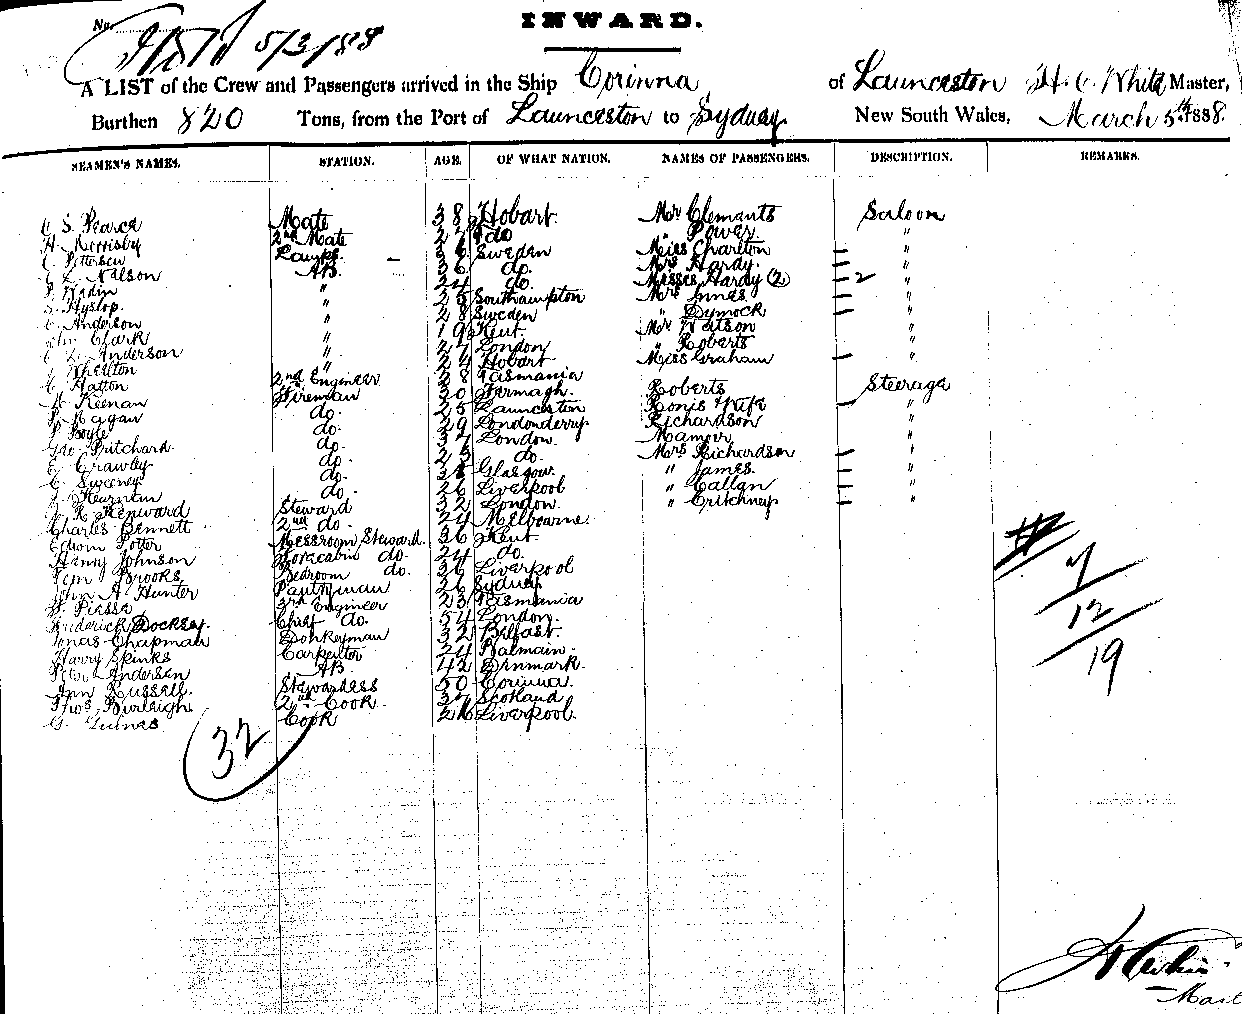 INWARD.
No. 5/3/88
A LIST of the Crew and Passengers arrived in the Ship Corinna of Launceston H. C. White Master,
Burthen 820 Tons, from the Port of Launceston to Sydney New South Wales, March 5th 1888.
SEAMEN'S NAMES. STATION. AGE. OF WHAT NATION. NAMES OF PASSENGERS. DESCRIPTION. REMARKS.
S. Pearce Mate 38 Hobart. Mr Clemants Saloon
A. Morrisby 2nd Mate 27 do " Power. "
C Petersen Lamps. Sweden Miss Charlton "
L. Nalson AB. 36 do. Mrs Hardy. "
" 24 do. Misses Hardy (2) 2 "
S. Hyslop. " 25 Southampton Mrs Innes "
C. Anderson " 28 Sweden " Dymock "
Clark " 19 Kent. Mr Watson "
L. Anderson " 27 London " Roberts "
Whelton " 24 Hobart Miss Graham "
Hatton 2nd Engineer 28 Tasmania
Keenan Fireman 30 Farmagh. Roberts Steerage
Hagan do. 25 Launceston & Wife "
P. Boyle do. 29 Londonderry Richardson "
Geo Pritchard do. 37 London. "
E. Crawley do. 25 do. Mrs Richardson "
C. Sweeney do. Glasgow. " James. "
J. Kearnan do. 26 Liverpool " Callan "
R. Kenward Steward 32 London. " Critchney "
Charles Bennett 2nd do. 24 Melbourne
Edwin Potter Messroom Steward. 36 Kent
Henry Johnson Forecabin do. 24 do.
Brooks Bedroom do. 36 Liverpool
John A. Hunter Pantryman 26 Sydney
Piassa 3rd Engineer 23 Tasmania
Frederick Docksey. Chief do. 54 London.
Jonas Chapman Donkeyman 32 Belfast.
Harry Skinks Carpenter 24 Balmain.
Peter Andersen AB 42 Denmark.
Ann Russell. Stewardess 50 Corinna.
Thos Burleigh 2nd Cook 37 Scotland
G. Cook 26 Liverpool.
32
7
12
19